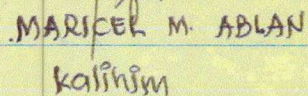 MARICEL M. ABLAN
Kalihim